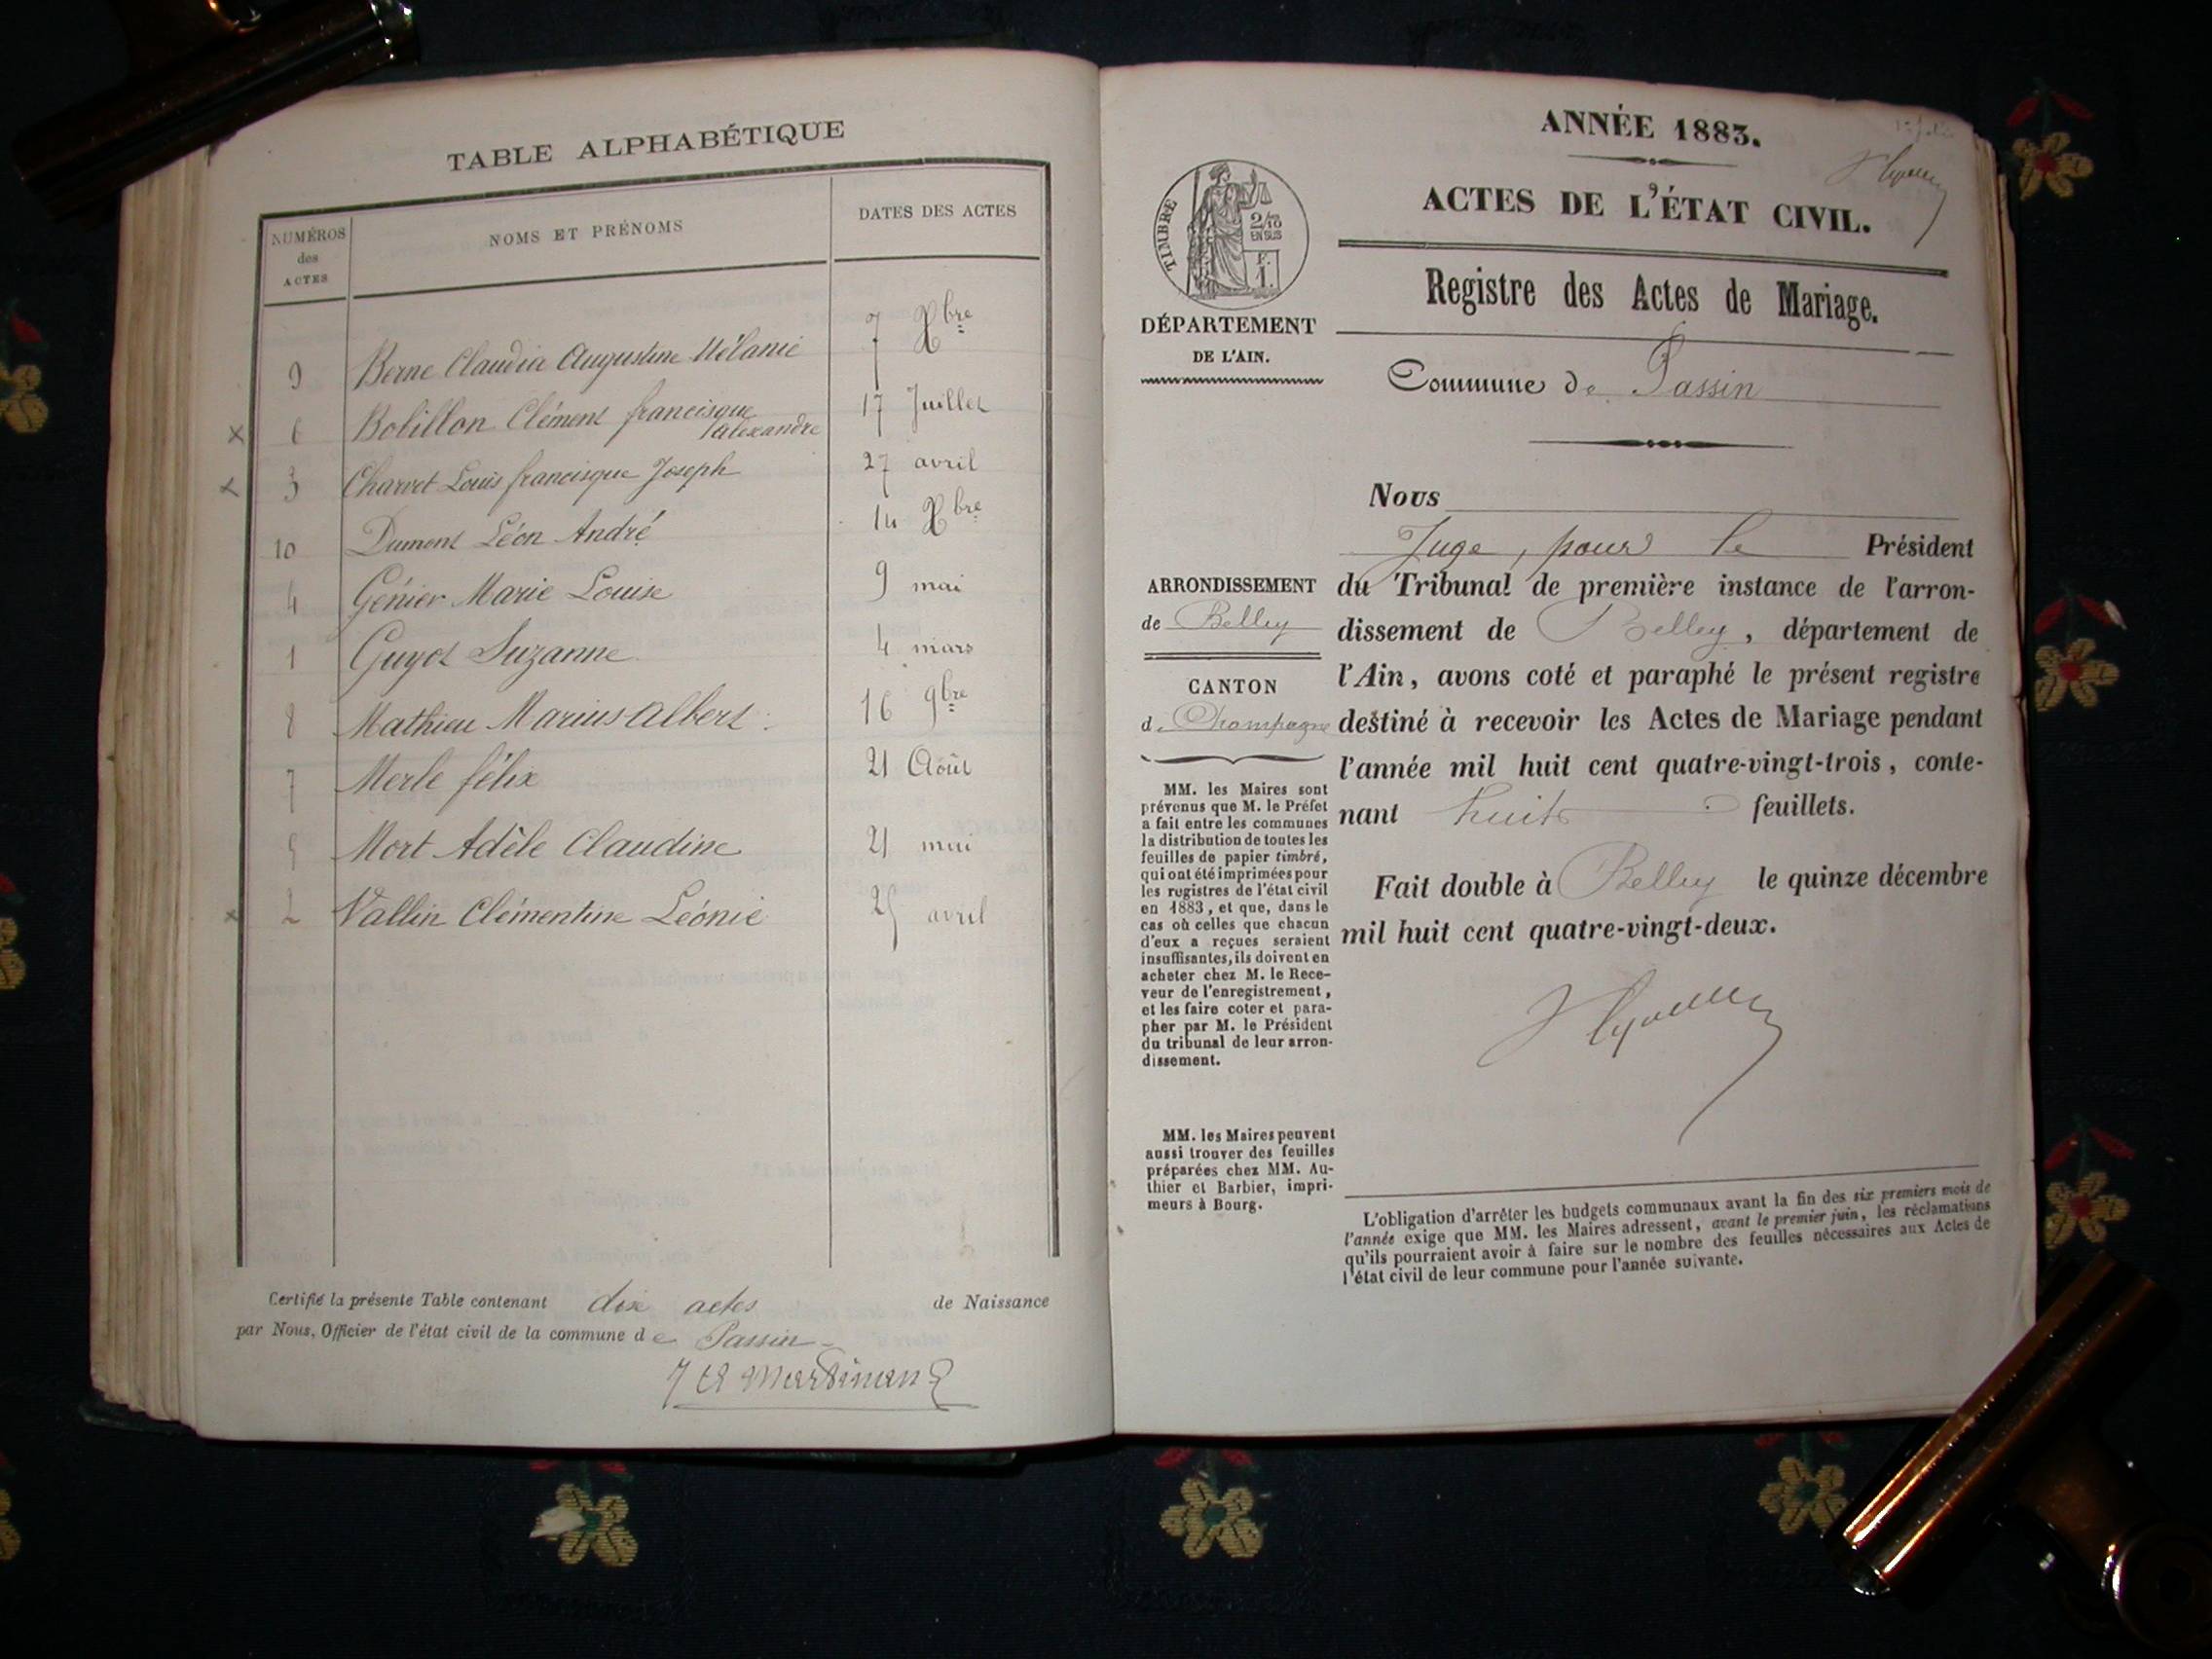 TABLE ALPHABÉTIQUE
NUMÉROS des ACTES NOMS ET PRÉNOMS DATES DES ACTES
9 Berne Claudia Augustine Mélanie 7 Xbre
x 6 Bobillon Clément francisque alexandre 17 Juillet
x 3 Charvet Louis francisque Joseph 27 avril
10 Dumont Léon André 14 Xbre
4 Génier Marie Louise 9 mai
1 Guyot Suzanne 4 mars
8 Mathieu Marius albert 16 9bre
7 Merle félix 21 Août
5 Mort Adèle Claudine 21 mai
x 2 Vallin Clémentine Léonie 25 avril
Certifié la présente Table contenant dix actes de Naissance
par Nous, Officier de l'état civil de la commune de Passin
ANNÉE 1883.
ACTES DE L'ÉTAT CIVIL.
TIMBRE
2/10
EN SUS
F.
1.
Registre des Actes de Mariage.
DÉPARTEMENT
DE L'AIN.
Commune de Passin
Nous
Juge, pour le Président
ARRONDISSEMENT
de Belley
CANTON
de Champagne
du Tribunal de première instance de l'arron-
dissement de Belley, département de
l'Ain, avons coté et paraphé le présent registre
destiné à recevoir les Actes de Mariage pendant
l'année mil huit cent quatre-vingt-trois, conte-
nant huit feuillets.
Fait double à Belley le quinze décembre
mil huit cent quatre-vingt-deux.
MM. les Maires sont
prévenus que M. le Préfet
a fait entre les communes
la distribution de toutes les
feuilles de papier timbré,
qui ont été imprimées pour
les registres de l'état civil
en 1883, et que, dans le
cas où celles que chacun
d'eux a reçues seraient
insuffisantes, ils doivent en
acheter chez M. le Rece-
veur de l'enregistrement,
et les faire coter et para-
pher par M. le Président
du tribunal de leur arron-
dissement.
MM. les Maires peuvent
aussi trouver des feuilles
préparées chez MM. Au-
thier et Barbier, impri-
meurs à Bourg.
L'obligation d'arrêter les budgets communaux avant la fin des six premiers mois de
l'année exige que MM. les Maires adressent, avant le premier juin, les réclamations
qu'ils pourraient avoir à faire sur le nombre des feuilles nécessaires aux Actes de
l'état civil de leur commune pour l'année suivante.